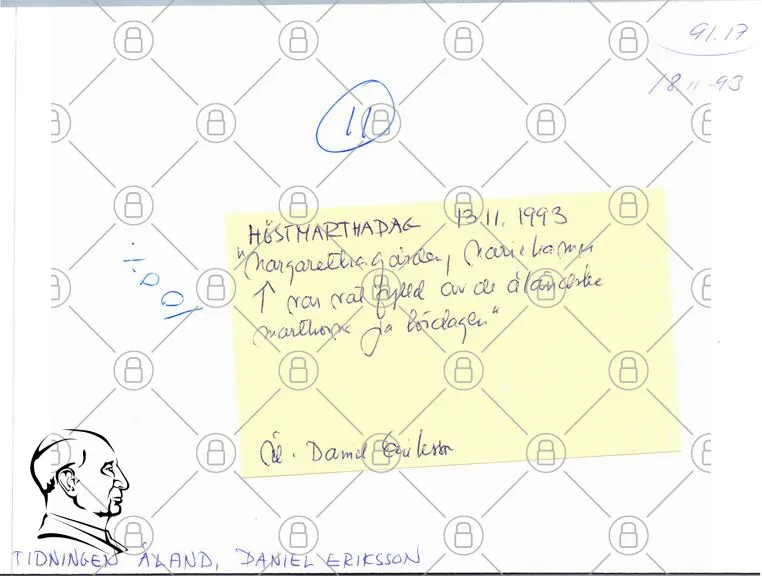 91.17
18 11 -93
11
100%
HÖSTMARTHADAG 13.11.1993
"Margarethagården, Mariehamn
↑ var väl fylld av de åländska
marthorna på lördagen"
Ål. Daniel Eriksson
TIDNINGEN ÅLAND, DANIEL ERIKSSON